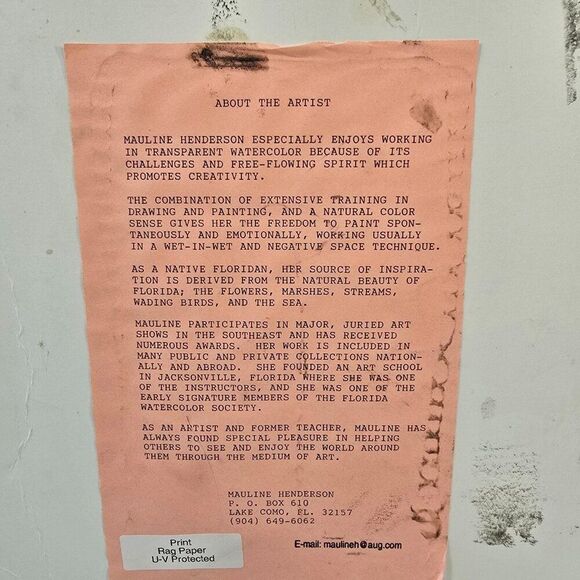 ABOUT THE ARTIST
MAULINE HENDERSON ESPECIALLY ENJOYS WORKING
IN TRANSPARENT WATERCOLOR BECAUSE OF ITS
CHALLENGES AND FREE-FLOWING SPIRIT WHICH
PROMOTES CREATIVITY.
THE COMBINATION OF EXTENSIVE TRAINING IN
DRAWING AND PAINTING, AND A NATURAL COLOR
SENSE GIVES HER THE FREEDOM TO PAINT SPON-
TANEOUSLY AND EMOTIONALLY, WORKING USUALLY
IN A WET-IN-WET AND NEGATIVE SPACE TECHNIQUE.
AS A NATIVE FLORIDAN, HER SOURCE OF INSPIRA-
TION IS DERIVED FROM THE NATURAL BEAUTY OF
FLORIDA; THE FLOWERS, MARSHES, STREAMS,
WADING BIRDS, AND THE SEA.
MAULINE PARTICIPATES IN MAJOR, JURIED ART
SHOWS IN THE SOUTHEAST AND HAS RECEIVED
NUMEROUS AWARDS. HER WORK IS INCLUDED IN
MANY PUBLIC AND PRIVATE COLLECTIONS NATION-
ALLY AND ABROAD. SHE FOUNDED AN ART SCHOOL
IN JACKSONVILLE, FLORIDA WHERE SHE WAS ONE
OF THE INSTRUCTORS, AND SHE WAS ONE OF THE
EARLY SIGNATURE MEMBERS OF THE FLORIDA
WATERCOLOR SOCIETY.
AS AN ARTIST AND FORMER TEACHER, MAULINE HAS
ALWAYS FOUND SPECIAL PLEASURE IN HELPING
OTHERS TO SEE AND ENJOY THE WORLD AROUND
THEM THROUGH THE MEDIUM OF ART.
MAULINE HENDERSON
P. O. BOX 610
LAKE COMO, FL. 32157
(904) 649-6062
Print
Rag Paper
U-V Protected
E-mail: maulineh@aug.com